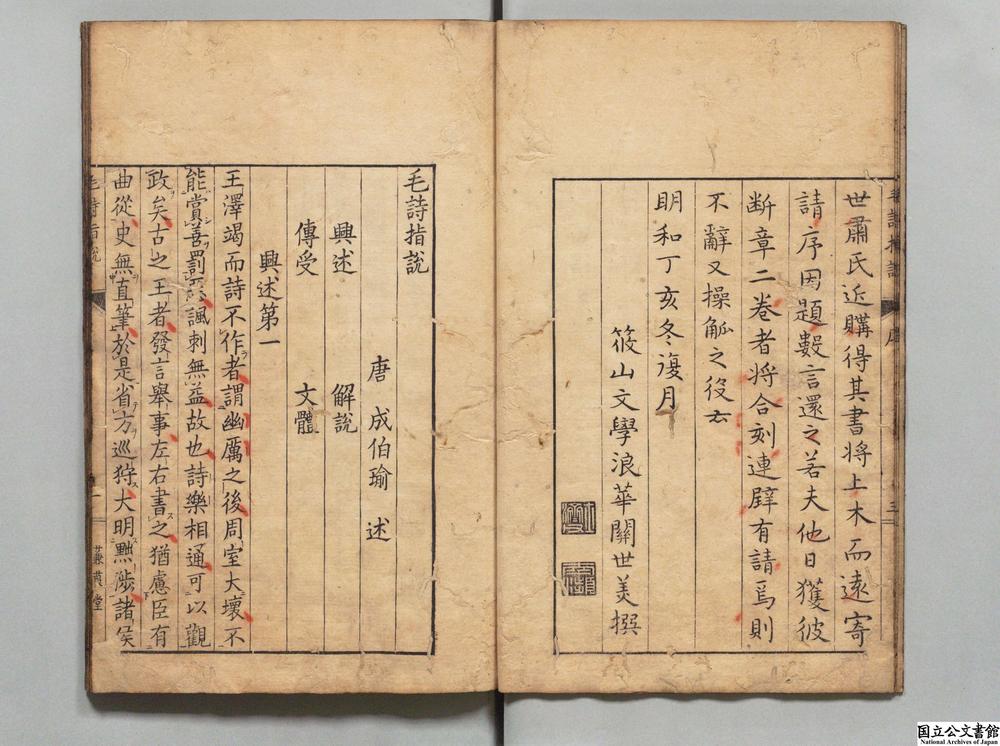 世肅氏近購得其書將上木而遠寄
請序因題數言還之若夫他日獲彼
斷章二卷者將合刻連辟有請焉則
不辭又操觚之役云
明和丁亥冬復月
筱山文學浪華關世美撰
毛詩指說
序
三
毛詩指說
唐 成伯瑜 述
興述 解說
傳受 文體
興述第一
王澤竭而詩不作者謂幽厲之後周室大壞不
能賞善罰惡諷刺無益故也詩樂相通可以觀
政矣古之王者發言舉事左右書之猶慮臣有
曲從史無直筆於是省方巡狩大明黜陟諸侯
毛詩指說
一
蒹葭堂
国立公文書館
National Archives of Japan